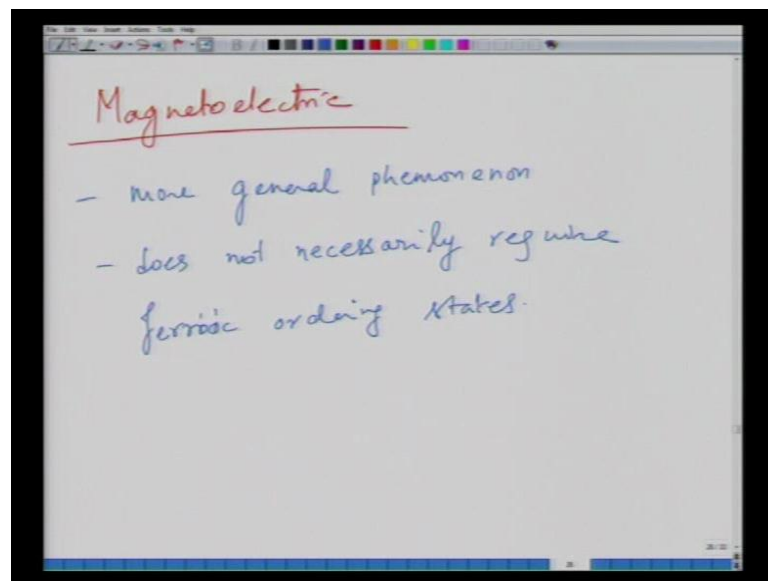 File Edit View Insert Actions Tools Help
Magnetoelectric
- more general phemonenon
- does not necessarily require
ferroic ordering states.